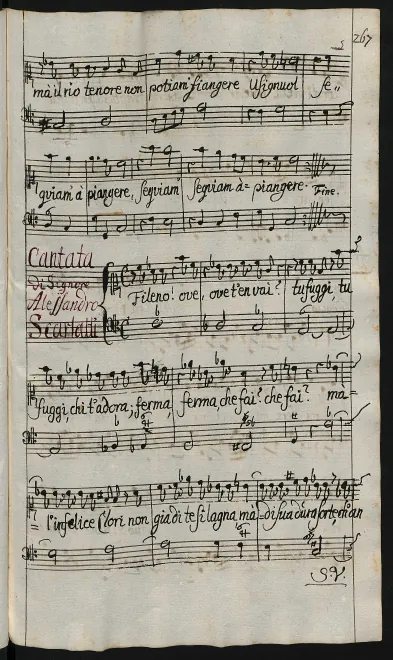 267
ma il rio tenore non potiam' piangere Usignuol se,,
quiam à piangere, Seqviam' Seqviam à= piangere. Fine.
Cantata
di Signore
Alessandro
Scarlatti
Fileno! ove, ove t'en vai? tu fuggi, tu
fuggi, chi t'adora; ferma, ferma, che fai? che fai? mà=
= l'infelice Clori non già di te si lagna mà=di sua dura sorte,
S.V.